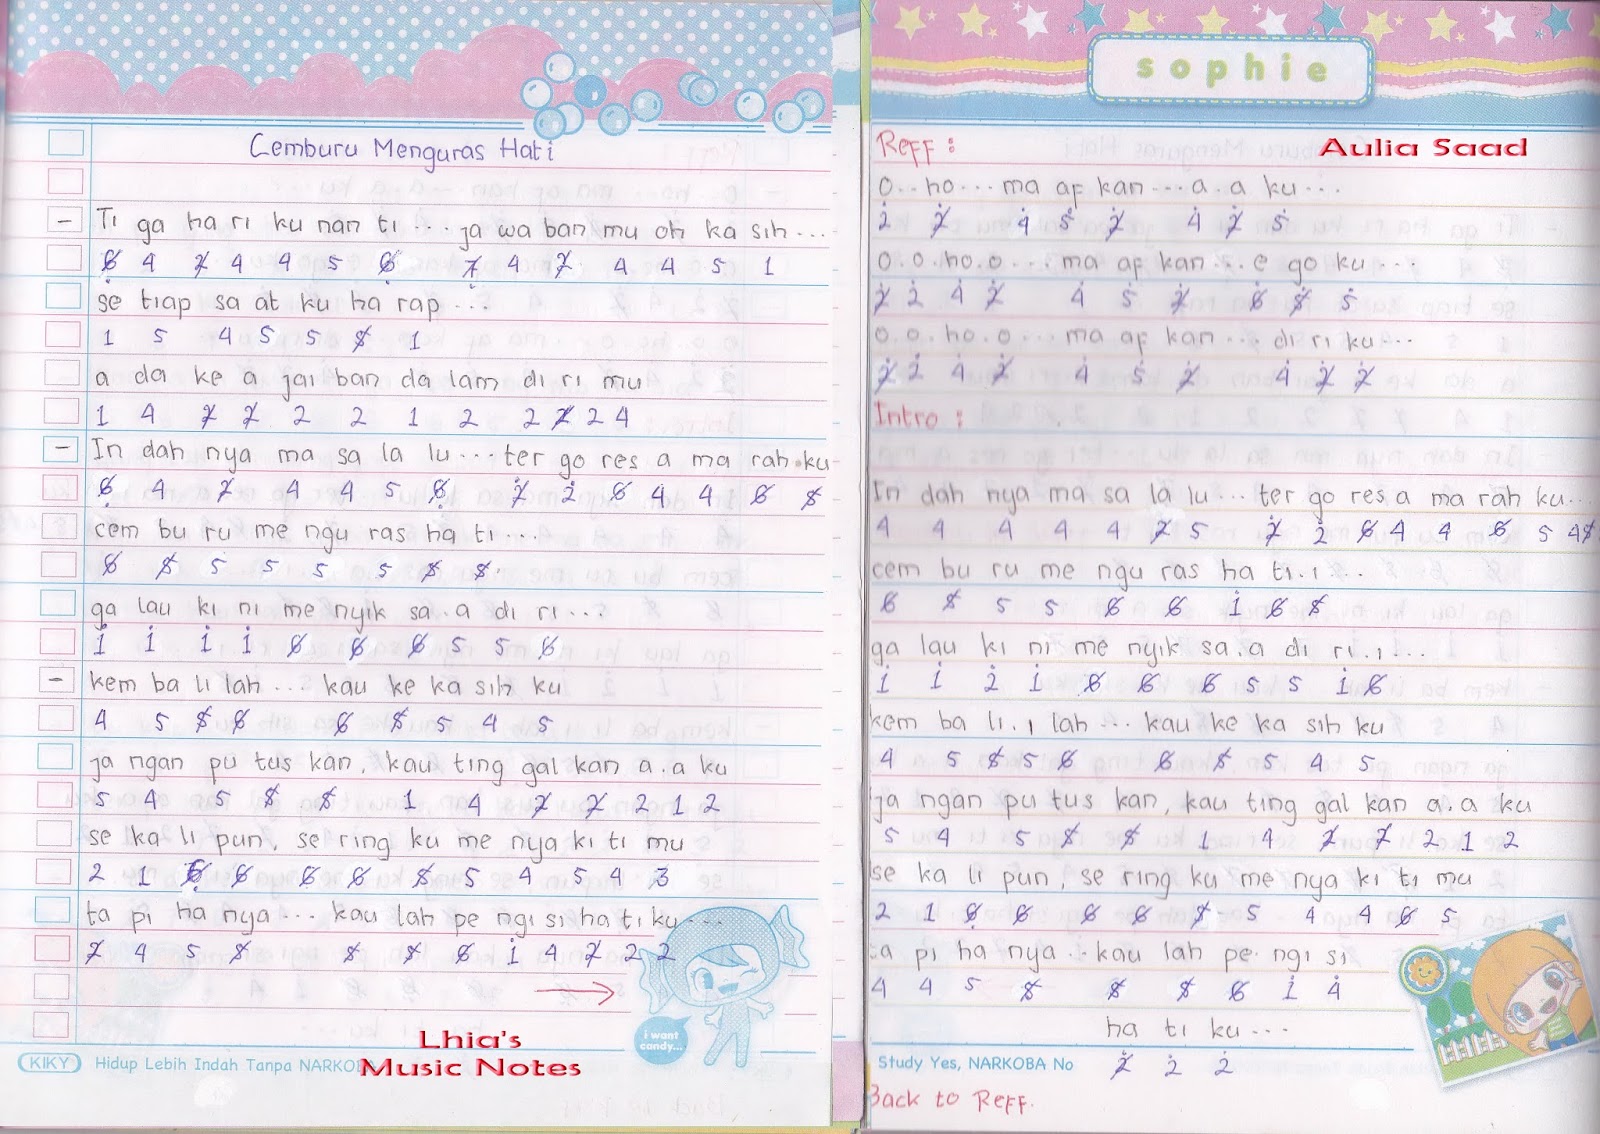 Cemburu Menguras Hati
- Ti ga ha ri ku nan ti ... ja wa ban mu oh ka sih ...
6̸ 4 2̸ 4 4 5 6̸ 7̸ 4 2̸ 4 4 5 1
se tiap sa at ku ha rap ...
1 5 4 5 5 5̸ 1
a da ke a jai ban da lam di ri mu
1 4 2̸ 2̸ 2 2 1 2 2 2̸ 2 4
- In dah nya ma sa la lu ... ter go res a ma rah ku
6̸ 4 2̸ 4 4 5 6̸ 2̸ 2 6̸ 4 4 6̸ 5̸
cem bu ru me ngu ras ha ti ...
6̸ 5̸ 5 5 5 5 5̸ 5̸
ga lau ki ni me nyik sa . a di ri ...
1 1 1 1 6̸ 6̸ 6̸ 5 5 6̸
- kem ba li lah ... kau ke ka sih ku
4 5 5̸ 6̸ 6̸ 5̸ 5 4 5
ja ngan pu tus kan, kau ting gal kan a . a ku
5 4 5 5̸ 5̸ 1 4 2̸ 2̸ 2 1 2
se ka li pun, se ring ku me nya ki ti mu
2 1 6̸ 6̸ 6̸ 6̸ 5̸ 5 4 5 4 3
ta pi ha nya ... kau lah pe ngi si ha ti ku ...
2̸ 4 5 5̸ 5̸ 5̸ 6̸ 1 4 2̸ 2 2
i want candy...
Lhia's
Music Notes
KIKY Hidup Lebih Indah Tanpa NARKOBA
sophie
Reff :
Aulia Saad
o .. ho ... ma af kan ... a . a ku ...
2 2̸ 4 5 2̸ 4 2̸ 5
o . o . ho . o ... ma af kan ... e go ku ...
2̸ 2 4 2̸ 4 5 2̸ 6̸ 5̸ 5
o . o . ho . o ... ma af kan ... di ri ku ...
2̸ 2 4 2̸ 4 5 2̸ 4 2̸ 2̸
Intro :
In dah nya ma sa la lu ... ter go res a ma rah ku ...
4 4 4 4 4 2̸ 5 2̸ 2 6̸ 4 4 6̸ 5 4 5̸
cem bu ru me ngu ras ha ti . i ...
6̸ 5̸ 5 5 6̸ 6̸ 1 6̸ 5̸
ga lau ki ni me nyik sa . a di ri . i ...
1 1 2 1 6̸ 6̸ 6̸ 5 5 1 6̸
kem ba li . i lah ... kau ke ka sih ku
4 5 5̸ 5 6̸ 6̸ 5̸ 5 4 5
ja ngan pu tus kan, kau ting gal kan a . a ku
5 4 5 5̸ 5̸ 1 4 2̸ 2̸ 2 1 2
se ka li pun, se ring ku me nya ki ti mu
2 1 6̸ 6̸ 6̸ 6̸ 5̸ 5 4 4 6̸ 5
ta pi ha nya .. kau lah pe ngi si
4 4 5 5̸ 5̸ 5̸ 6̸ 1 4
ha ti ku ...
Study Yes, NARKOBA No
2̸ 2 2
Back to Reff.